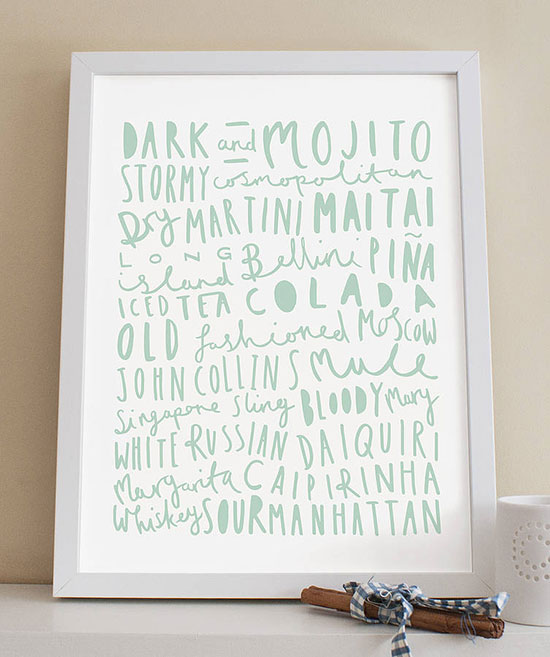 DARK and MOJITO
STORMY cosmopolitan
Dry MARTINI MAI TAI
LONG Bellini PIÑA
island COLADA
ICED TEA
OLD fashioned MOSCOW
JOHN COLLINS Mule
Singapore Sling BLOODY Mary
WHITE RUSSIAN DAIQUIRI
Margarita CAIPIRINHA
Whiskey SOUR MANHATTAN